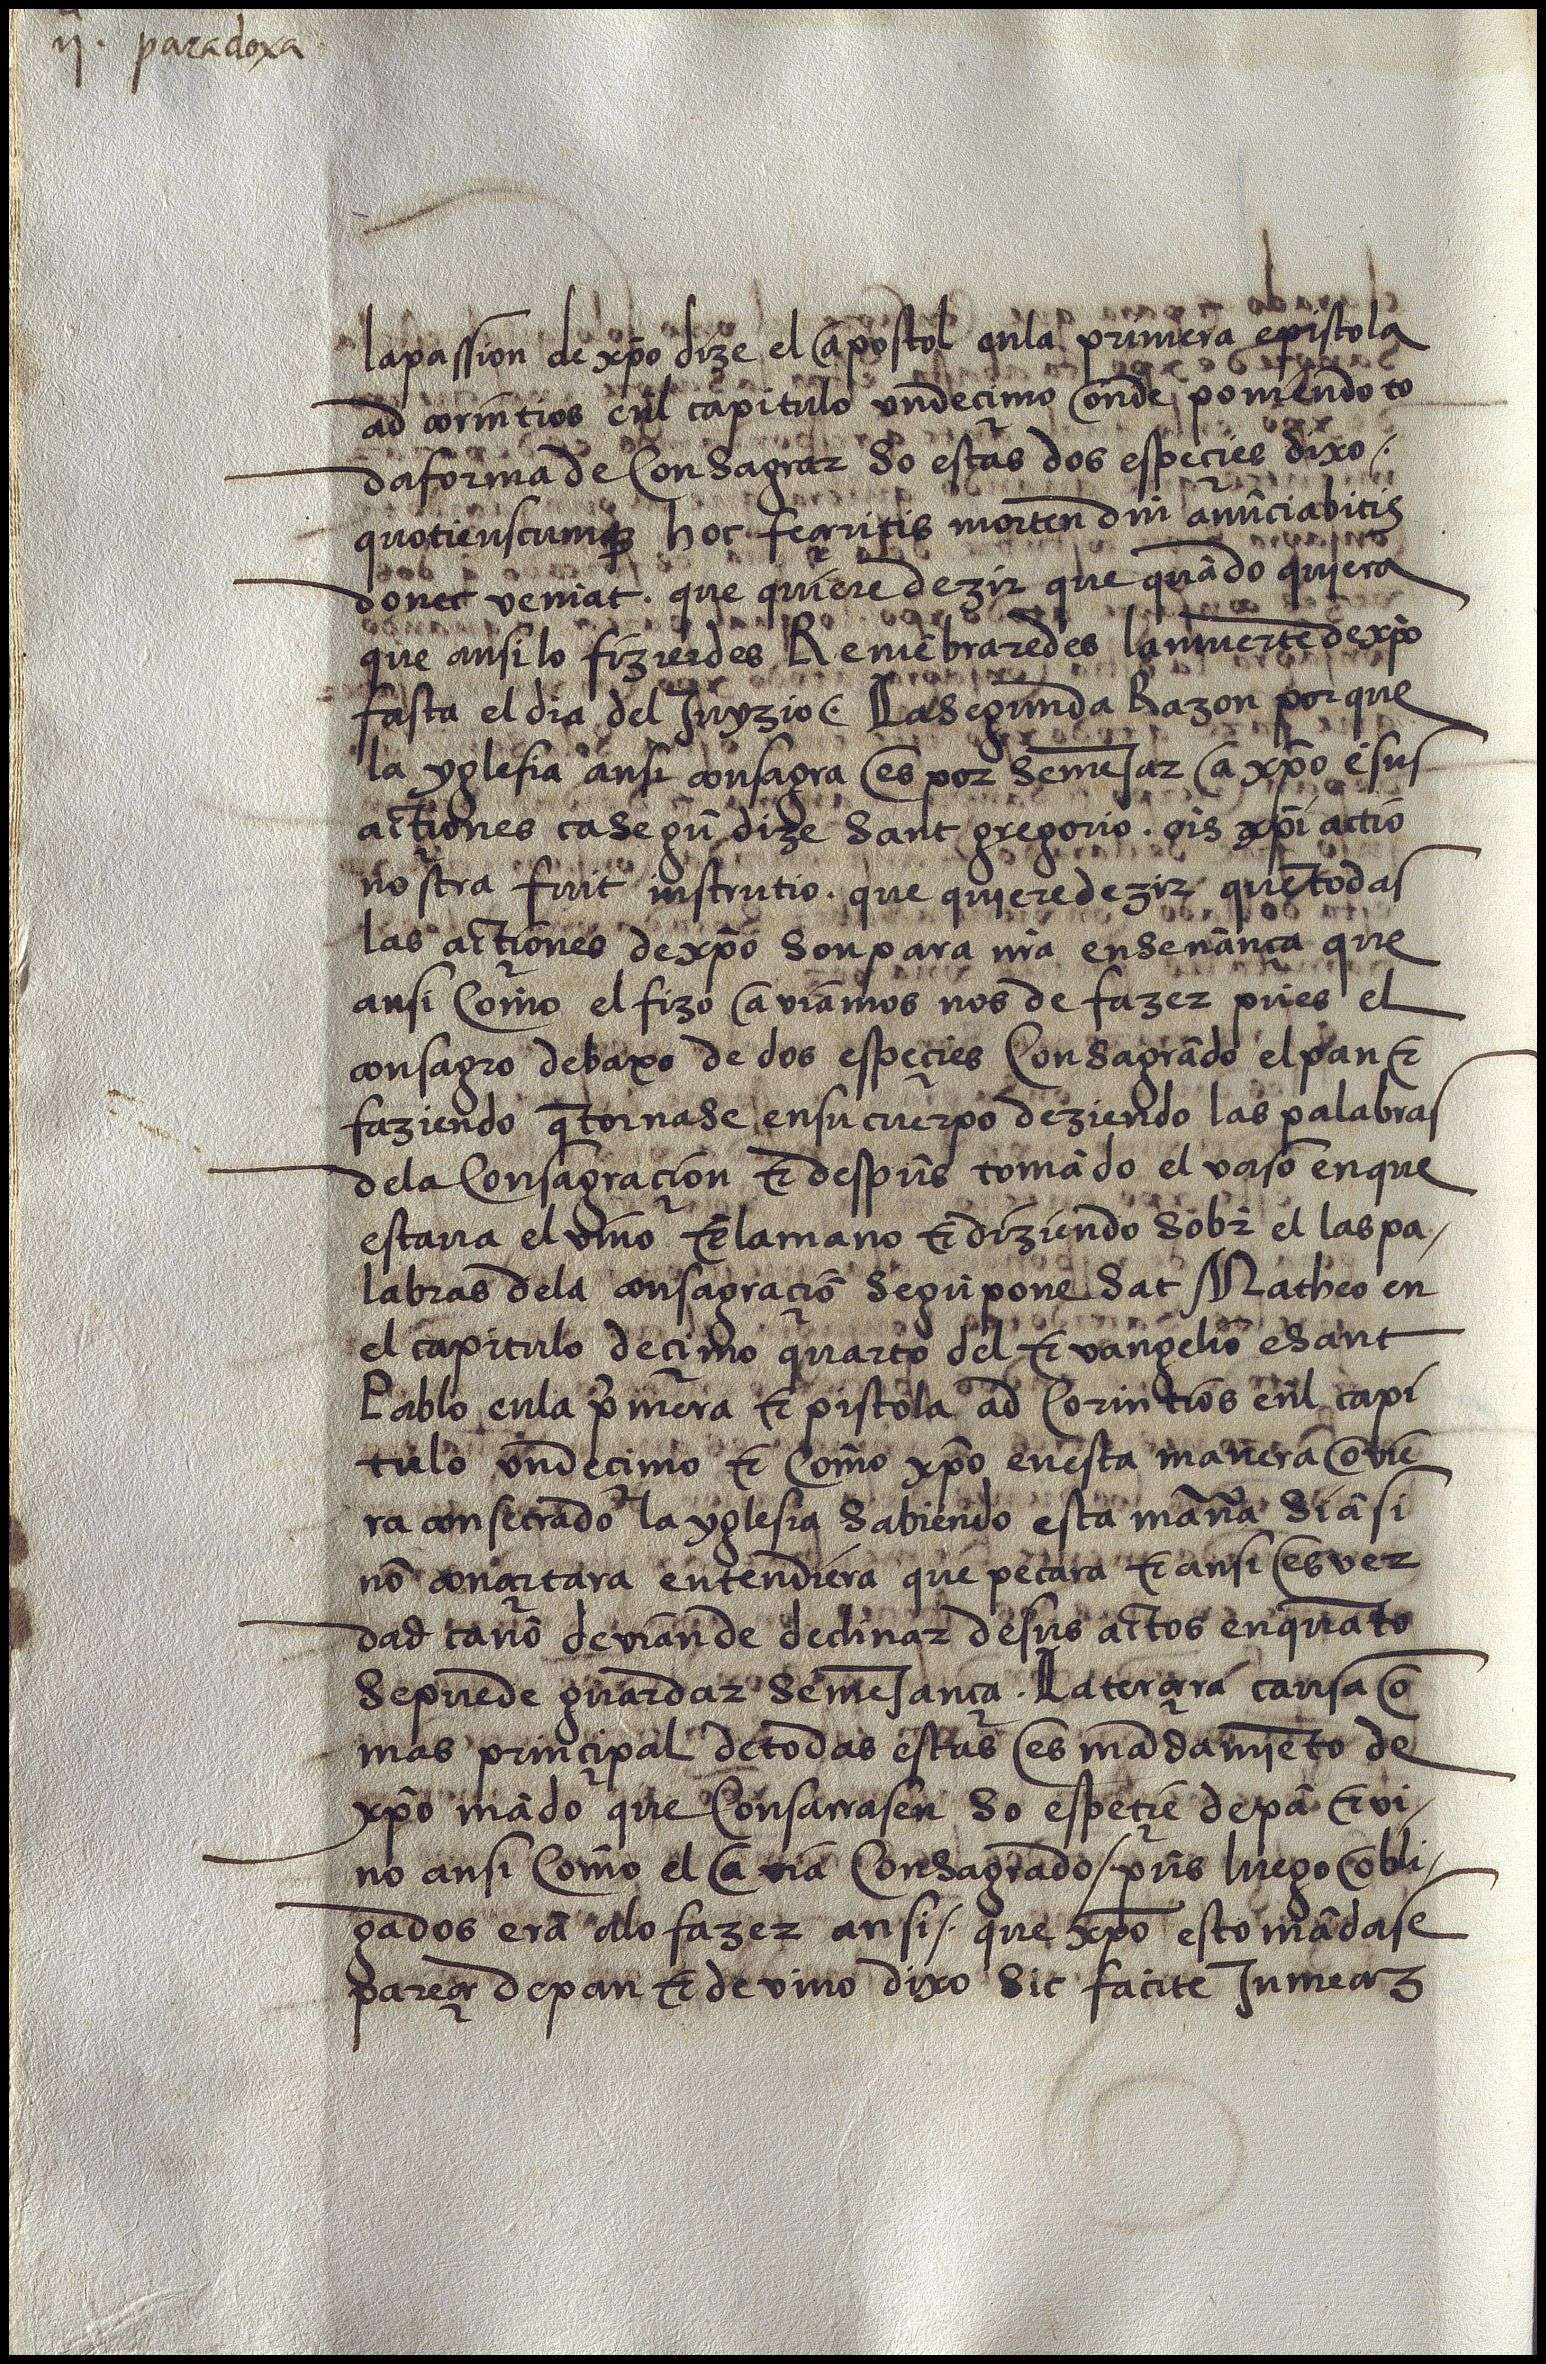 ij. paradoxa
la passion de xp̃o dize el apostol enla primera epistola
ad corintios eñl capitulo vndecimo onde poniendo to
da forma de Consagrar so estas dos especies dixo /.
quotienscumq̃ hoc feceritis mortem dñi anũciabitis
donec veniat . que quiere dezir que quãdo quiera
que ansi lo fizierdes Remẽbraredes la muerte de xp̃o
fasta el dia del Juyzio /. La segunda Razon por que
la yglesia ansi consagra es por semeJar a xp̃o e sus
actiones ca segũ dize sant gregorio . oĩs xp̃i actio
nostra fuit instrutio . que quiere dezir que todas
las actiones de xp̃o son para nr̃a ensenãnça que
ansi Com̃o el fizo aviamos nos de fazer pues el
consagro debaxo de dos especies Consagrãdo el pan &
faziendo q̃ tornase en su cuerpo deziendo las palabras
dela Consagraçion & despũs tomãdo el vaso en que
estaua el vino eñ la mano & diziendo sobr̃ el las pa /
labras dela consagraçiõ segũ pone sãt Matheo en
el capitulo deçimo quarto del Evangelio e sant
Pablo enla p̃mera Epistola ad Corintios eñl capi
tulo vndecimo & Com̃o xp̃o en esta manera ovie
ra consecrado la yglesia sabiendo esta mañra si ãsi
nõ conçertara entendiera que pecara & ansi es ver
dad ca nõ devian de declinar de sus actos en quãto
se puede guardar semeJança . La terçera causa e
mas prinçipal de todas estas es mãdamiẽto de
xp̃o mãdo que Consacrasen so espeçie de pã & vi /
no ansi Com̃o el avia Consagrado / pũs luego obli /
gados erã alo fazer ansi /. que xp̃o esto mãdase
pareçe de pan & de vino dixo sic facite In meaz